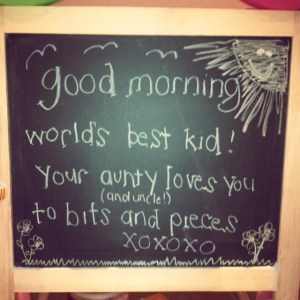 good morning
worlds best kid!
your aunty loves you
(and uncle!)
to bits and pieces
xoxoxo